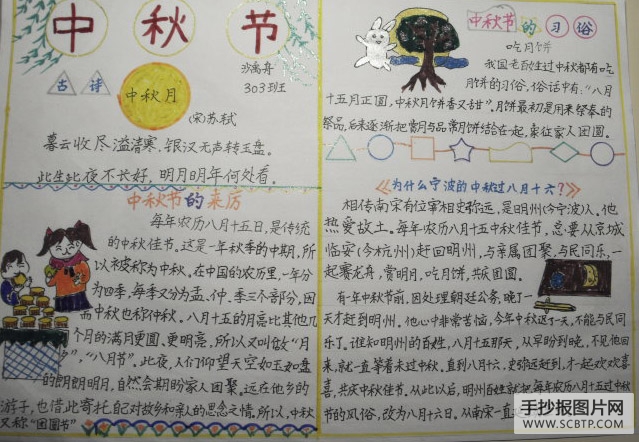 中秋节
古诗
中秋月
沙禹舟
303班
(宋)苏轼
暮云收尽溢清寒,银汉无声转玉盘。
此生此夜不长好,明月明年何处看。
中秋节的来历
每年农历八月十五日,是传统
的中秋佳节。这是一年秋季的中期,所
以被称为中秋。在中国的农历里,一年分
为四季,每季又分为孟、仲、季三个部分,因
而中秋也称仲秋。八月十五的月亮比其他几
个月的满月更圆、更明亮,所以又叫做“月
夕”,“八月节”。此夜,人们仰望天空如玉如盘
的朗朗明月,自然会期盼家人团聚。远在他乡的
游子,也借此寄托自己对故乡和亲人的思念之情。所以,中秋
又称“团圆节”
中秋节的习俗
吃月饼
我国老百姓过中秋都有吃
月饼的习俗,俗话中有:“八月
十五月正圆,中秋月饼香又甜”。月饼最初是用来祭奉的
祭品,后来逐渐把赏月与品尝月饼结合在一起,象征家人团圆。
《为什么宁波的中秋过八月十六?》
相传南宋有位宰相史弥远,是明州(今宁波)人。他
热爱故土。每年农历八月十五中秋佳节,总要从京城
临安(今杭州)赶回明州,与亲属团聚、与民同乐,一
起赛龙舟,赏明月,吃月饼,共庆团圆。
有一年中秋节前,因处理朝廷公务,晚了一
天才赶到明州。他心中非常苦恼,今年中秋迟了一天,不能与民同
乐了。谁知明州的百姓,八月十五那天,从早盼到晚,不见他回
来,就一直等着未过中秋。直到八月十六,史弥远赶到,才一起欢欢喜
喜,共庆中秋佳节。从此以后,明州百姓就把每年农历八月十五过中秋
节的风俗,改为八月十六日。从南宋一直
手抄报图片网
WWW.SCBTP.COM